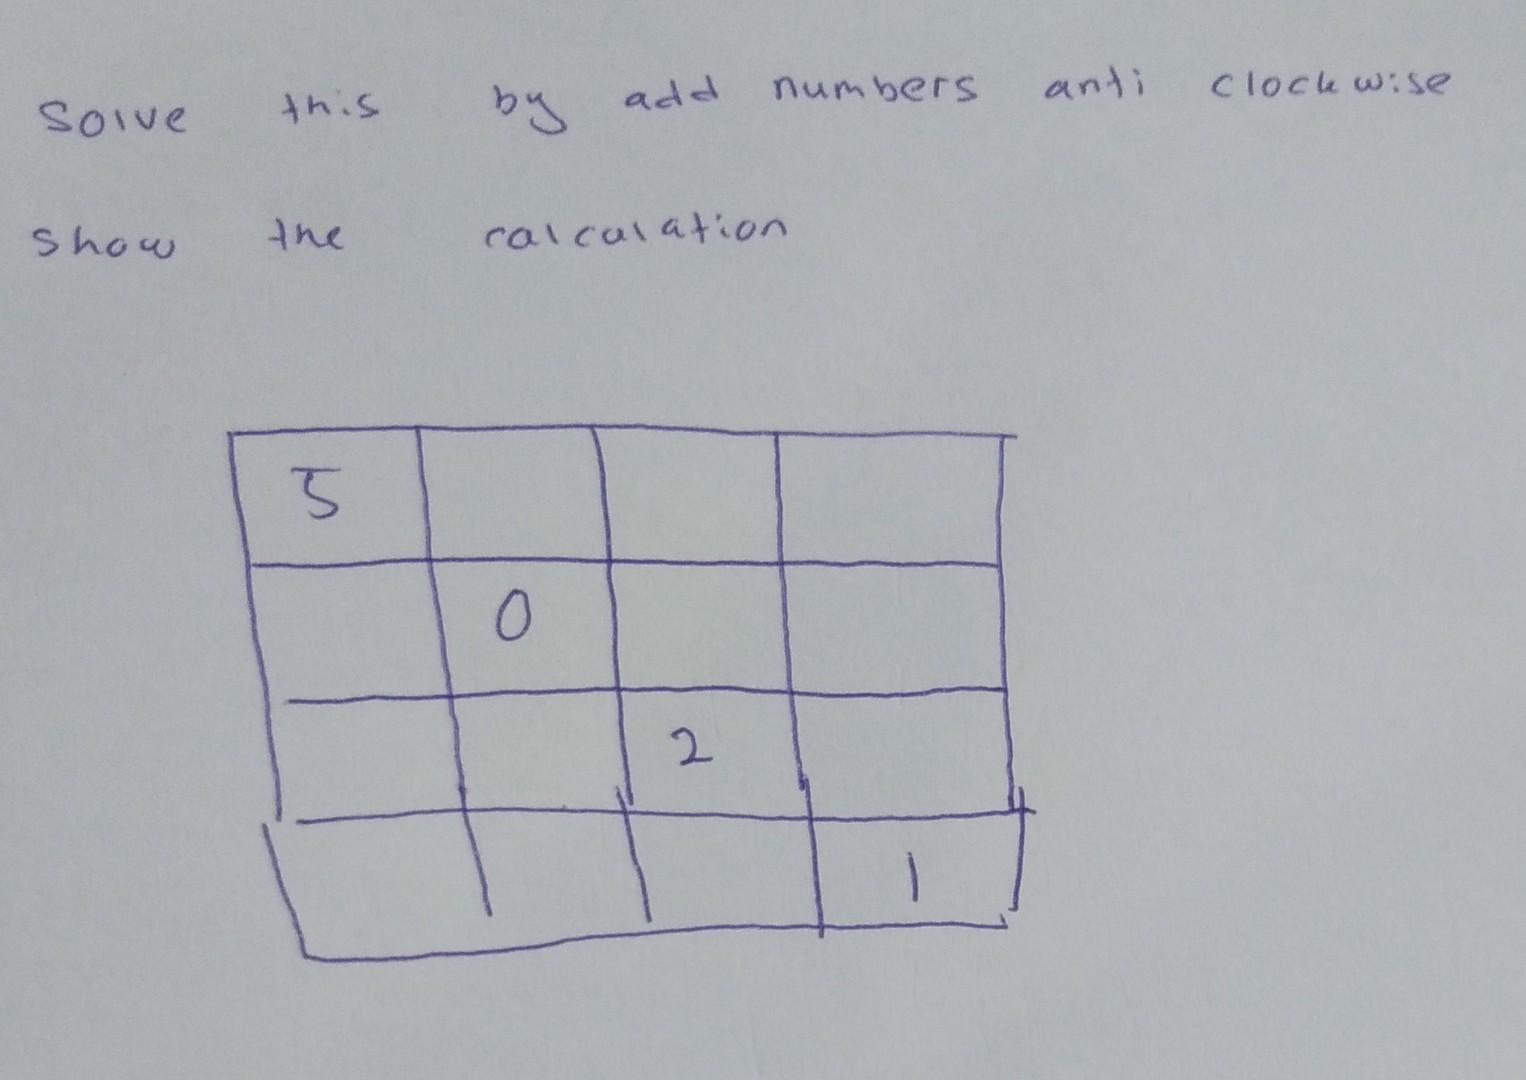 Solve this by add numbers anti clockwise
show the calculation
5
0
2
1